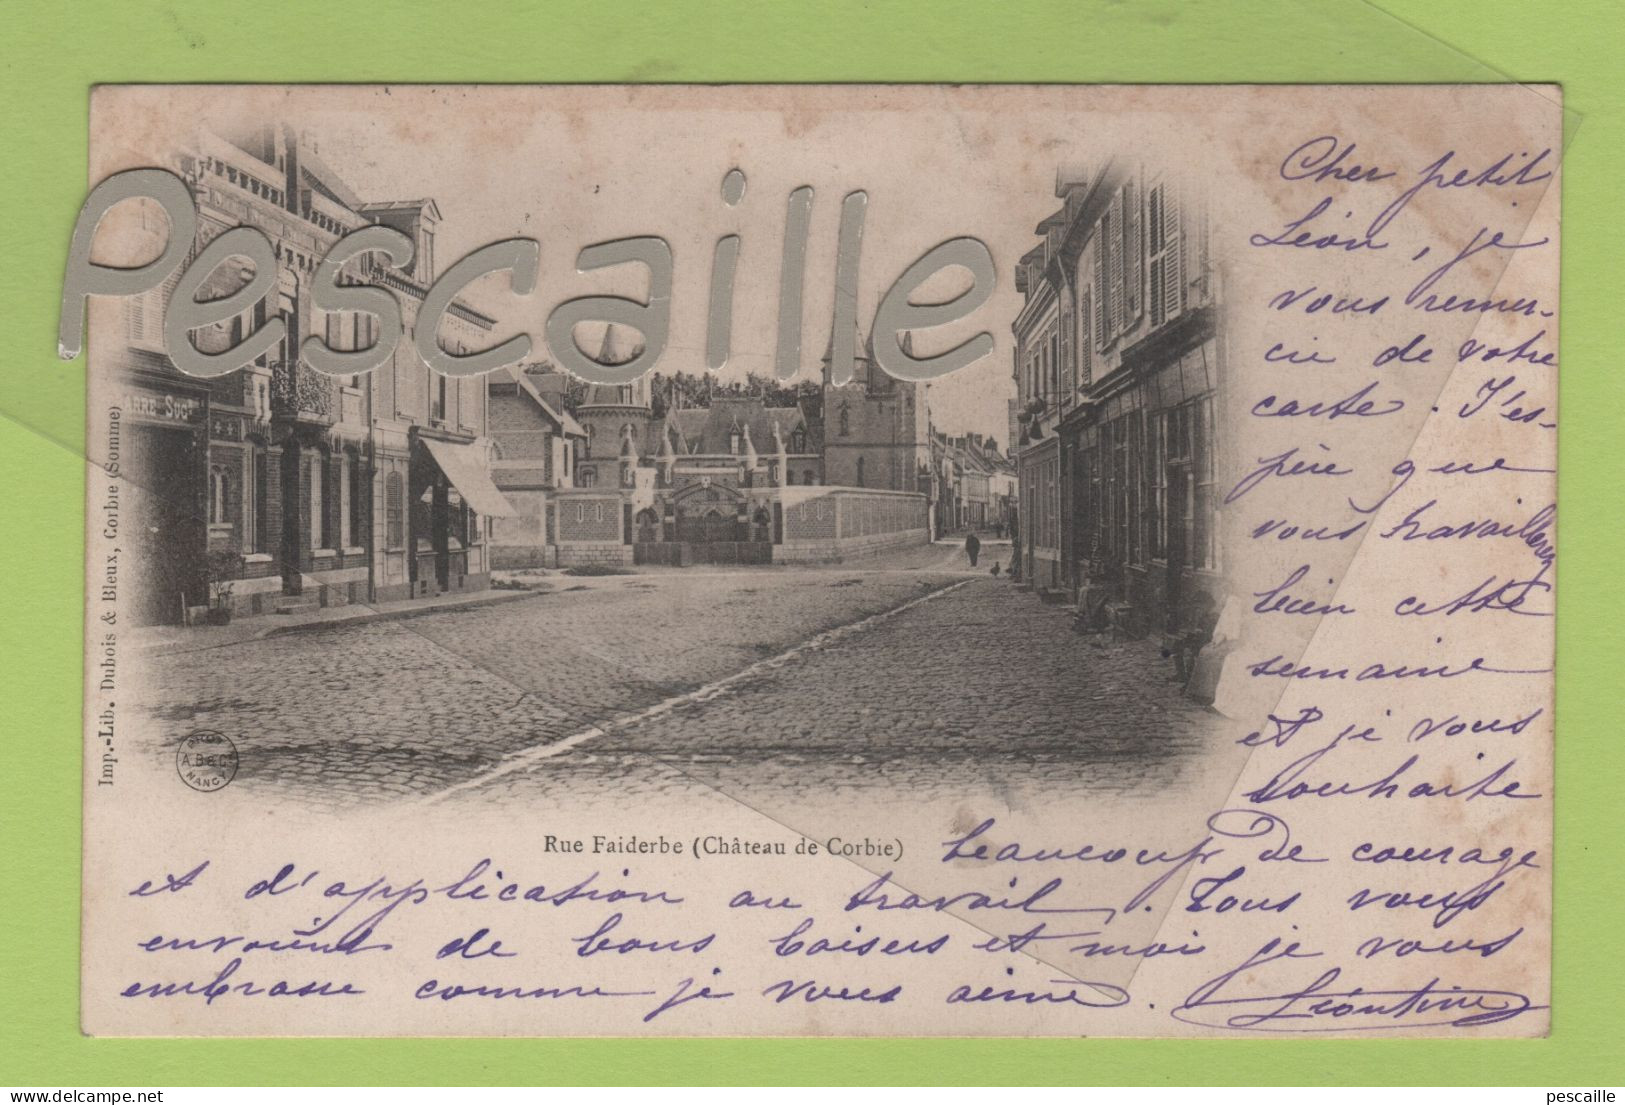 Pescaille
Cher petit
Léon, je
vous remer-
cie de votre
carte. J'es-
père que
vous travaillerez
bien cette
semaine
et je vous
souhaite
beaucoup de courage
et d'application au travail. Tous vous
envoient de bons baisers et moi je vous
embrasse comme je vous aime. Léontine
Rue Faiderbe (Château de Corbie)
Imp.-Lib. Dubois & Bleux, Corbie (Somme)
ARRE SUCr
PHOT
A.B & Cie
NANCY
delcampe.net
pescaille